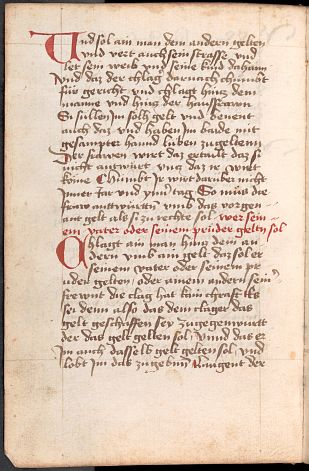 Und sol ain man dem andern gelten
vnd vert auch sein strasse vnd
let sein weib vnd seine kind dahaim
vnd daz der chlag darnach chumbt
für gericht vnd chlagt hintz dem
manne vnd hintz der hausfrawn
Si sullen im solh gelt vnd
auch daz vnd haben im baide mit
gesampter hannd luben zu geltenn
Der frawen wirt daz ertailt daz si
nicht antwürt vntz daz ir wirt
kome Chumbt Ir wirt darüber nicht
inner Jar vnd tag So mus die
fraw antwürtn vmb das vorgen
ant gelt als si zu rechte sol wer sein
em vater oder seinem prüder geltn sol
Chlagt ain man hintz dem an
dern vmb ain gelt daz sol er
seinem vater oder seinem pr
uder gelten oder anem andern seim
frewnt die clag hat kain chrafft Es
sei denn also das dem clager das
gelt geschaffen sey zugegenwurtt
der das gelt gelten sol vnnd das er
Im auch dasselb gelt gelten sol vnd
lobt Im das zugebnn laugent der